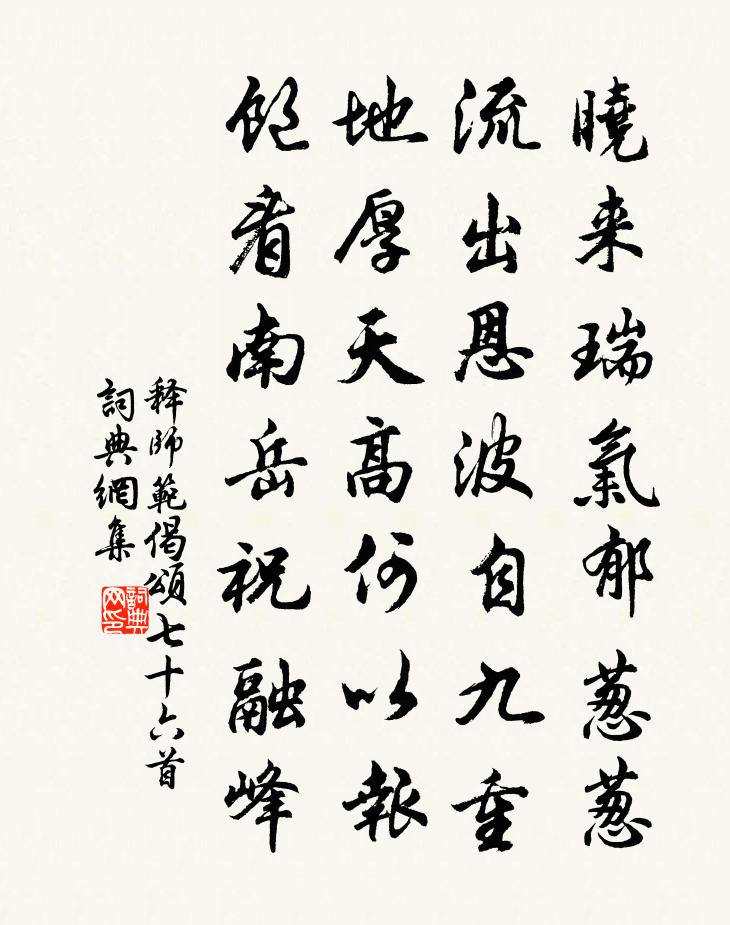 曉来瑞氣郁葱葱
流出恩波自九重
地厚天高何以報
飽看南岳祝融峰
释師範偈頌七十六首
詞典網集
詞典网印